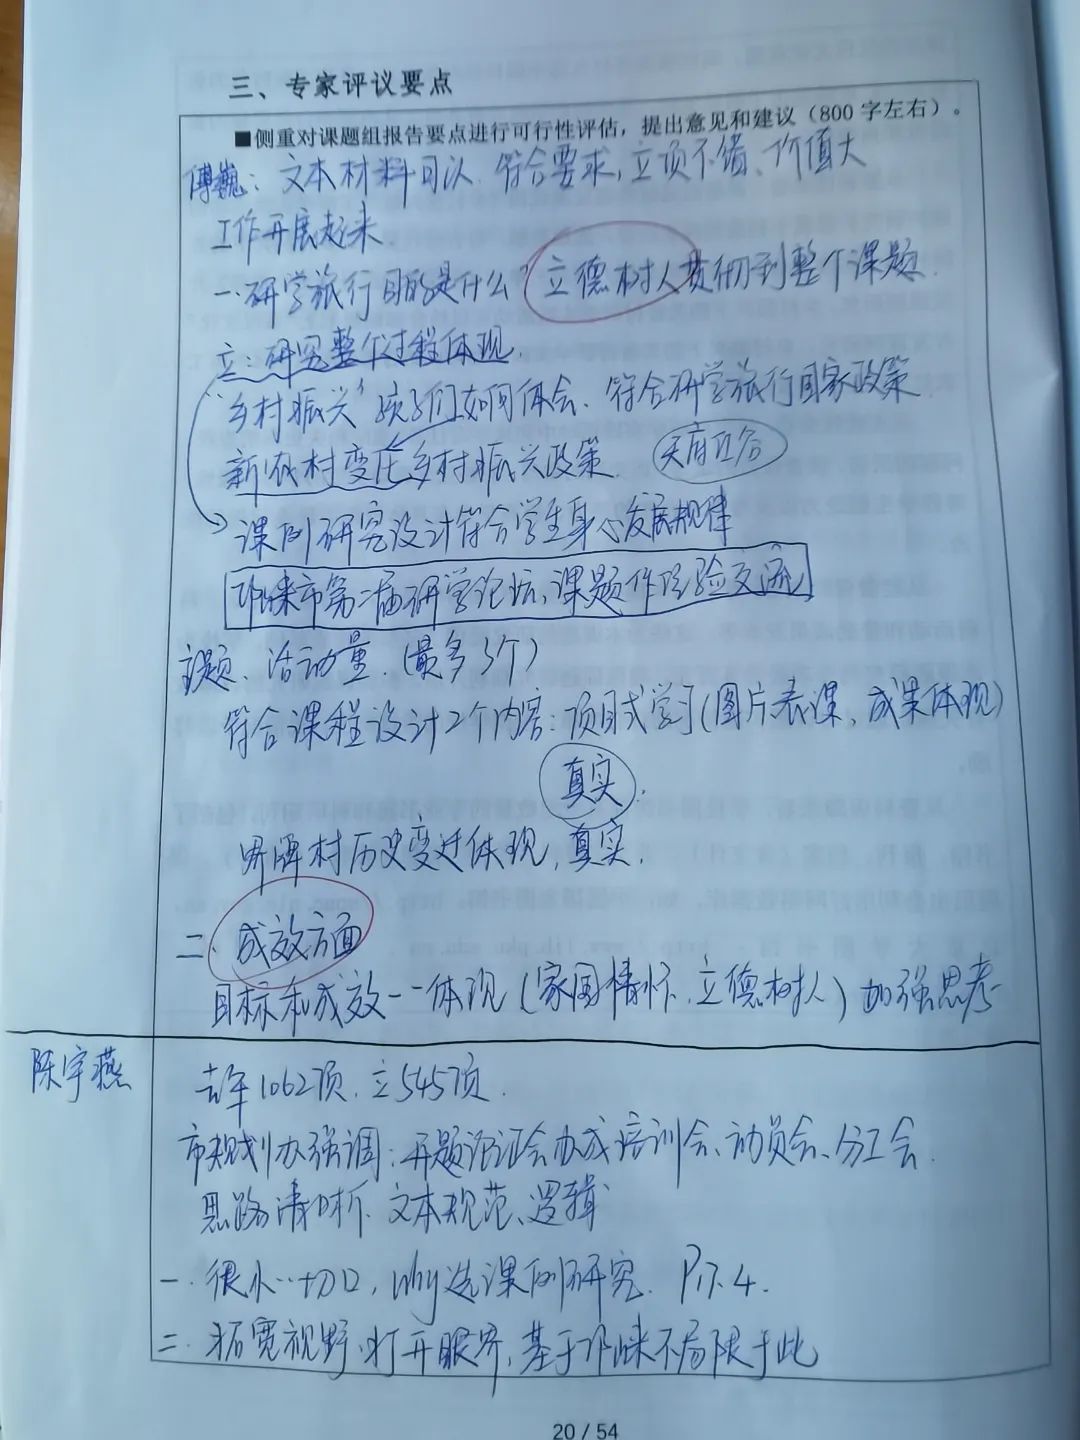 三、专家评议要点
■侧重对课题组报告要点进行可行性评估，提出意见和建议（800字左右）。
傅巍：文本材料可以、符合要求，立项不错、价值大
工作开展起来
一、研学旅行目的是什么？立德树人贯彻到整个课题
立：研究整个过程体现，
“乡村振兴”孩子们如何体会、符合研学旅行国家政策
新农村变化 乡村振兴政策 天府
课例研究设计符合学生身心发展规律
邛崃市第二届研学论坛、课题作经验交流
主题、活动量（最多3个）
符合课程设计2个内容：项目式学习（图片表课、成果体现）
真实
界牌村历史变迁体现，真实，
二、成效方面
目标和成效一一体现（家国情怀、立德树人）加强思考
陈宇燕
去年1062项、立545项
市规划办强调：开题论证会办成培训会、动员会、分工会
思路清晰、文本规范、逻辑
一、很小切口，why选课例研究 P17.4.
二、拓宽视野、打开眼界，基于邛崃不局限于此
20 / 54